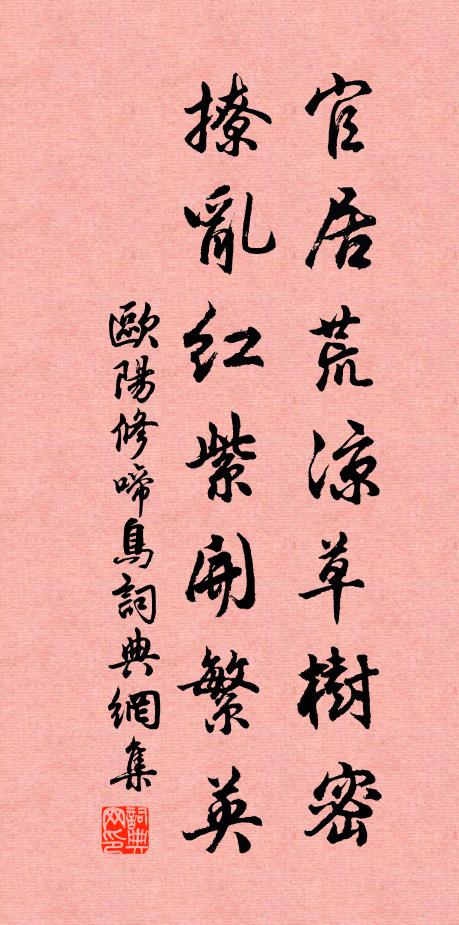 官居荒涼草樹密
撩亂紅紫開繁英
歐陽修啼鳥詞典網集
詞典网印